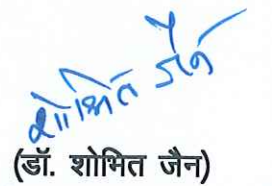 शोभित जैन
(डॉ. शोभित जैन)